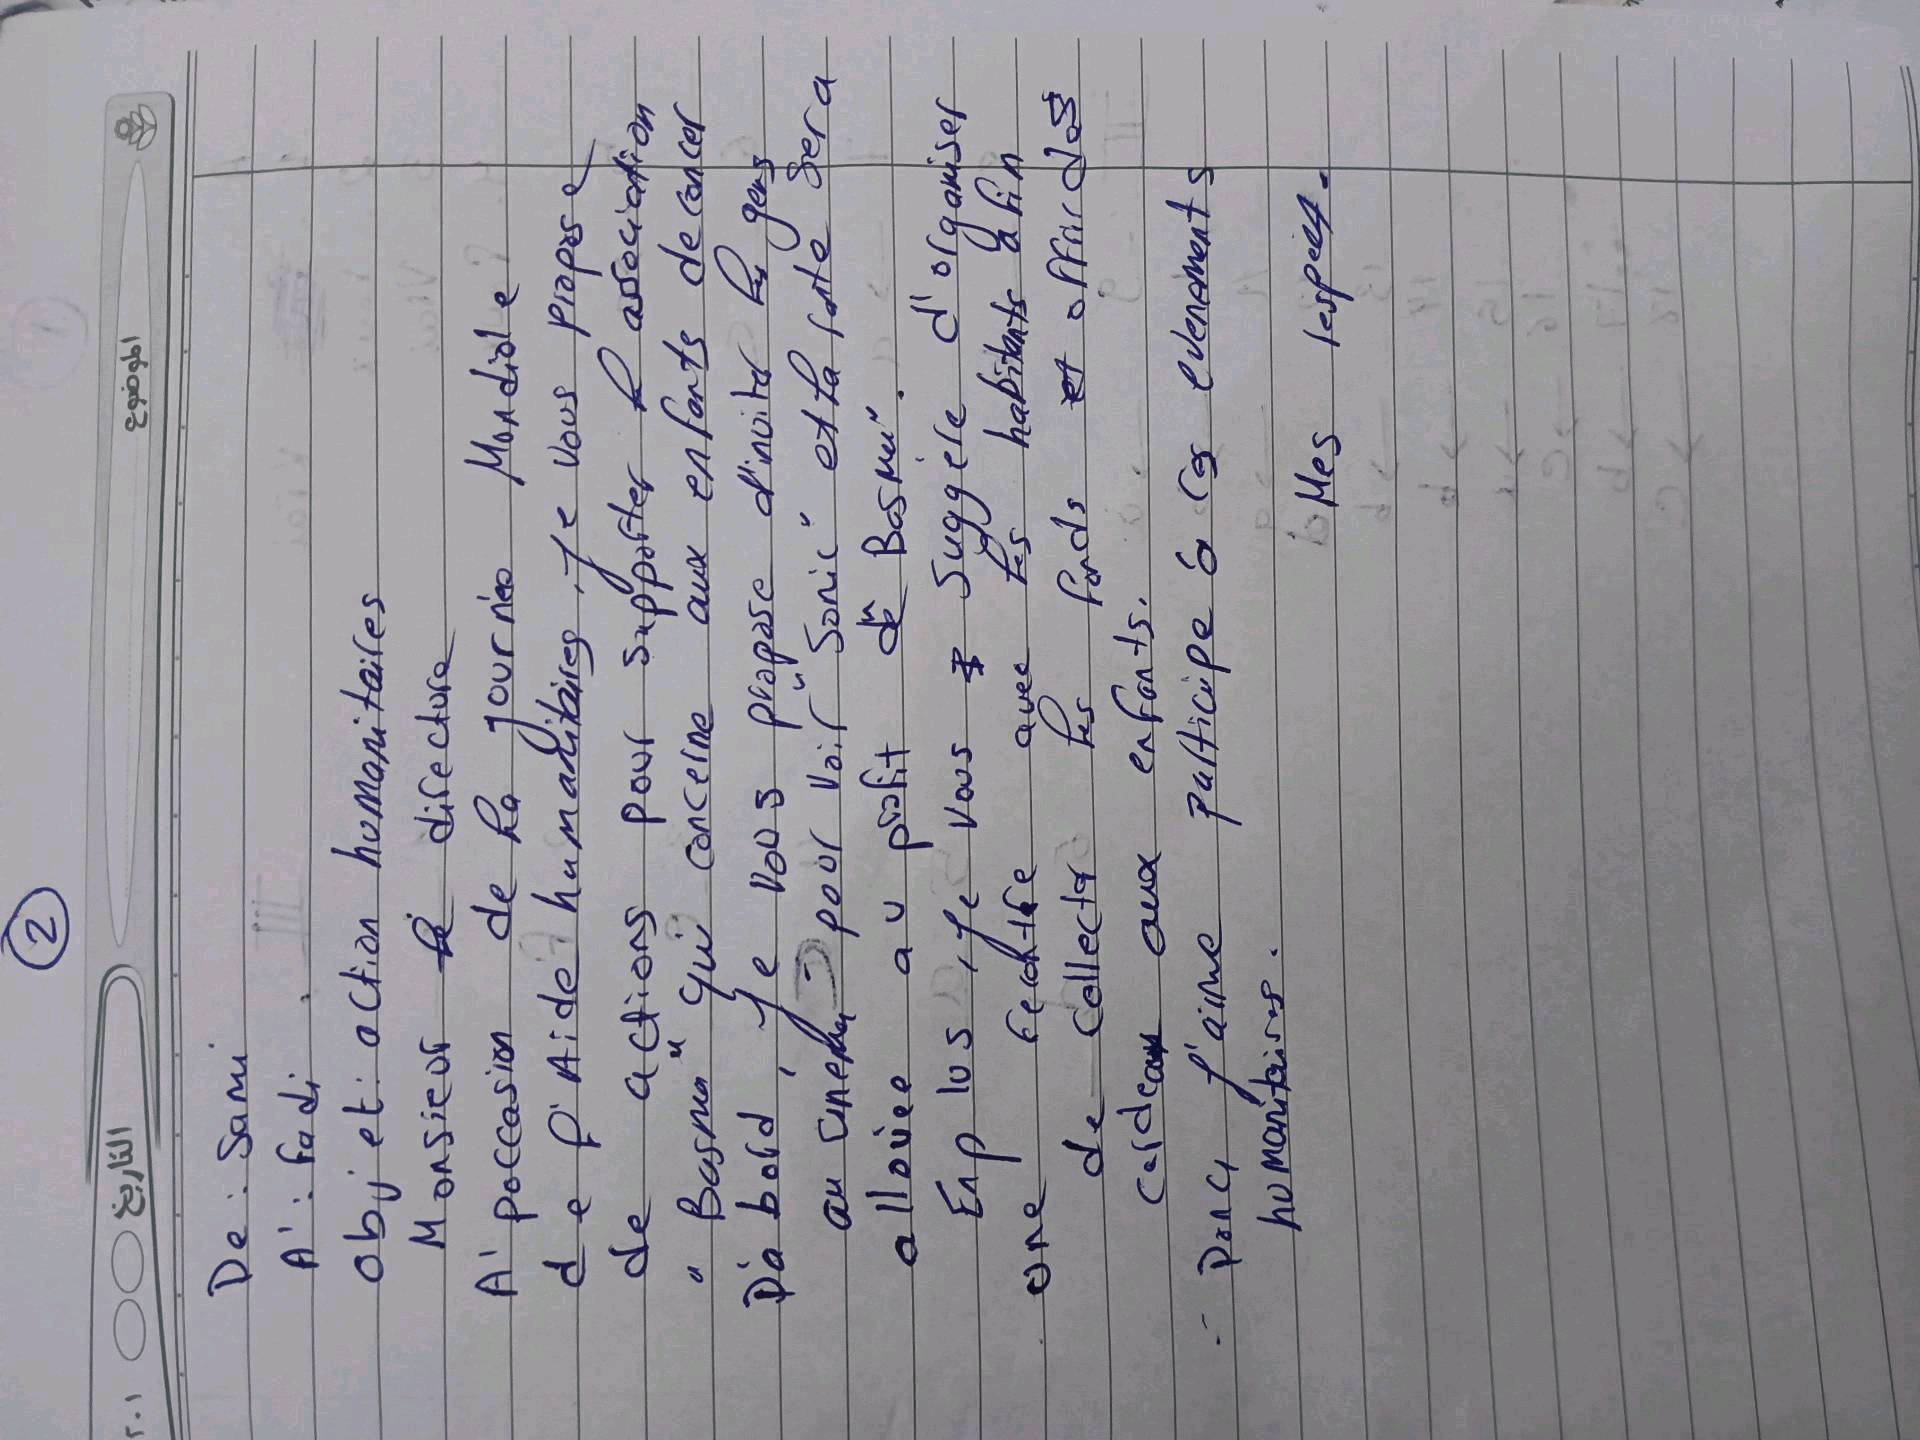 2
التاريخ
الموضوع
٢٠١
De : Sami
A' : Fadi
Objet : action humanitaires
Monsieur le directeur
A' l'occasion de la journée Mondiale
de l'Aide humanitaires, je vous propose
de actions pour supporter le association
"Basma" qui concerne aux enfants de cancer
D'abord, je vous propose d'inviter les gens
au cinema pour voir "Sonic" et la fonte sera
allouée au profit de "Basma".
En plus, je vous suggère d'organiser
une rencontre avec les habitants afin
de collecter les fonds et offrir des
cardeaux aux enfants.
Donc, j'aime participe à ces evenements
humanitaires.
Mes respect.